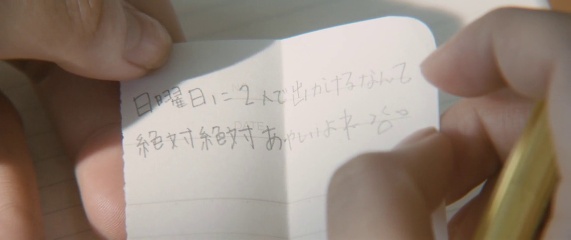 日曜日に2人で出かけるなんて
絶対絶対あやしいよねー